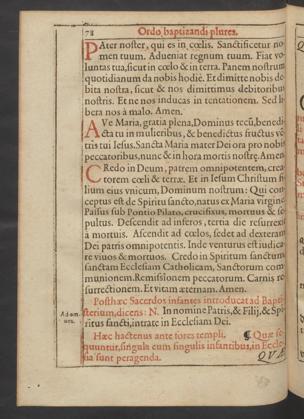 78 Ordo baptizandi plures.
PAter noster, qui es in cœlis. Sanctificetur no-
men tuum. Adueniat regnum tuum. Fiat vo-
luntas tua, sicut in cœlo & in terra. Panem nostrum
quotidianum da nobis hodiè. Et dimitte nobis de-
bita nostra, sicut & nos dimittimus debitoribus
nostris. Et ne nos inducas in tentationem. Sed li-
bera nos à malo. Amen.
AVe Maria, gratia plena, Dominus tecū, bened-
icta tu in mulieribus, & benedictus fructus vē-
tris tui Iesus. Sancta Maria mater Dei ora pro nobis
peccatoribus, nunc & in hora mortis nostrę. Amen
CRedo in Deum, patrem omnipotentem, crea-
torem cœli & terræ. Et in Iesum Christum fi-
lium eius vnicum, Dominum nostrum: Qui con-
ceptus est de Spiritu sancto, natus ex Maria virgine
Passus sub Pontio Pilato, crucifixus, mortuus & se-
pultus. Descendit ad inferos, tertia die resurrexit
à mortuis. Ascendit ad cœlos, sedet ad dexteram
Dei patris omnipotentis. Inde venturus est iudica-
re viuos & mortuos. Credo in Spiritum sanctum
sanctam Ecclesiam Catholicam, Sanctorum com-
munionem. Remissionem peccatorum. Carnis re-
surrectionem. Et vitam æternam. Amen.
Posthæc Sacerdos infantes introducat ad Bapti-
sterium, dicens: N. In nomine Patris, & Filij, & Spi-
ritus sancti, intrate in Ecclesiam Dei.
Hæc hactenus ante fores templi. ¶ Quæ se-
quuntur, singula cum singulis infantibus, in Eccle-
sia sunt peragenda.
QVÆ